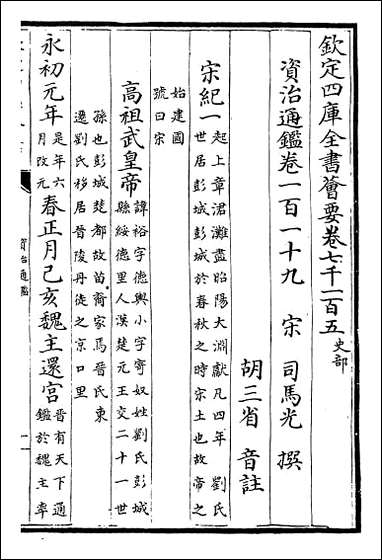 欽定四庫全書薈要卷七千一百五 史部
資治通鑑卷一百一十九 宋 司馬光 撰
胡三省 音註
宋紀一 起上章涒灘盡昭陽大淵獻凡四年 劉氏世居彭城彭城於春秋之時宋土也故帝之
始建國號曰宋
高祖武皇帝 諱裕字德輿小字寄奴姓劉氏彭城縣綏德里人漢楚元王交二十一世
孫也彭城楚都故苗裔家焉晉氏東遷劉氏移居晉陵丹徒之京口里
永初元年 是年六月改元 春正月己亥魏主還宮 晉有天下通鑑於魏主率
資治通鑑
一